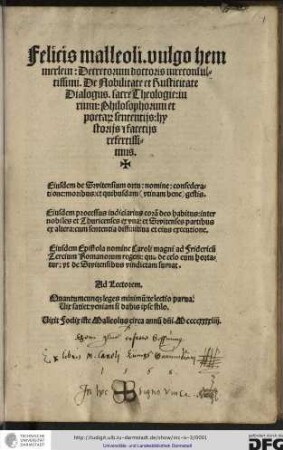 Felicis malleoli. vulgo hem
merlein: Decretorum doctoris iureconsul-
tissimi. De Nobilitate et Rusticitate
Dialogus. sacre Theologie: iu
rium: Philosophorum et
poetaꝝ sententijs: hy
storijs ⁊ facetijs
refertissi-
mus.
✠
Eiusdem de Switensium ortu: nomine: confedera-
tione: moribus: et quibusdam (vtinam bene) gestis.
Eiusdem processus iudiciarius corā deo habitus: inter
nobiles et Thuricenses ex vna: et Switenses partibus
ex altera: cum sententia diffinitiua et eius executione.
Eiusdem Epistola nomine Caroli magni ad Fridericū
Tercium Romanorum regem: qui de celo eum horta-
tur: vt de Switensibus vindictam sumat.
Ad Lectorem.
Quantumcunqȝ legens minimū te lectio parua
Vix satiet: veniam si dabis ipse stilo.
Vixit Foelix iste Malleolus circa annū dñi. Mccccxxxxiiij.
Ex libris
1 5 6
In hoc signo vince
http://tudigit.ulb.tu-darmstadt.de/show/inc-iv-0/0001
Universitäts- und Landesbibliothek Darmstadt
gefördert durch die
DFG